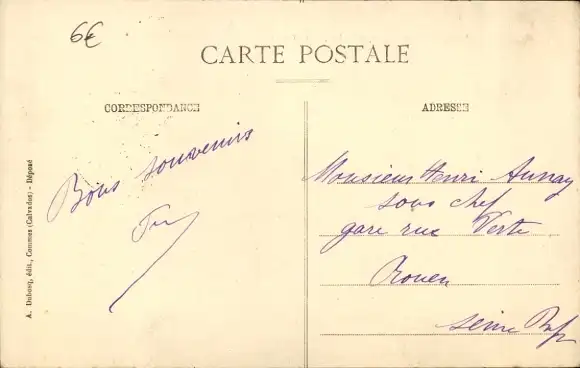 6€
CARTE POSTALE
CORRESPONDANCE
ADRESSE
Bons souvenirs
Monsieur Henri Aunay
sous chef
gare rue Verte
Rouen
Seine
A. Dubosq, édit., Commes (Calvados) - Déposé